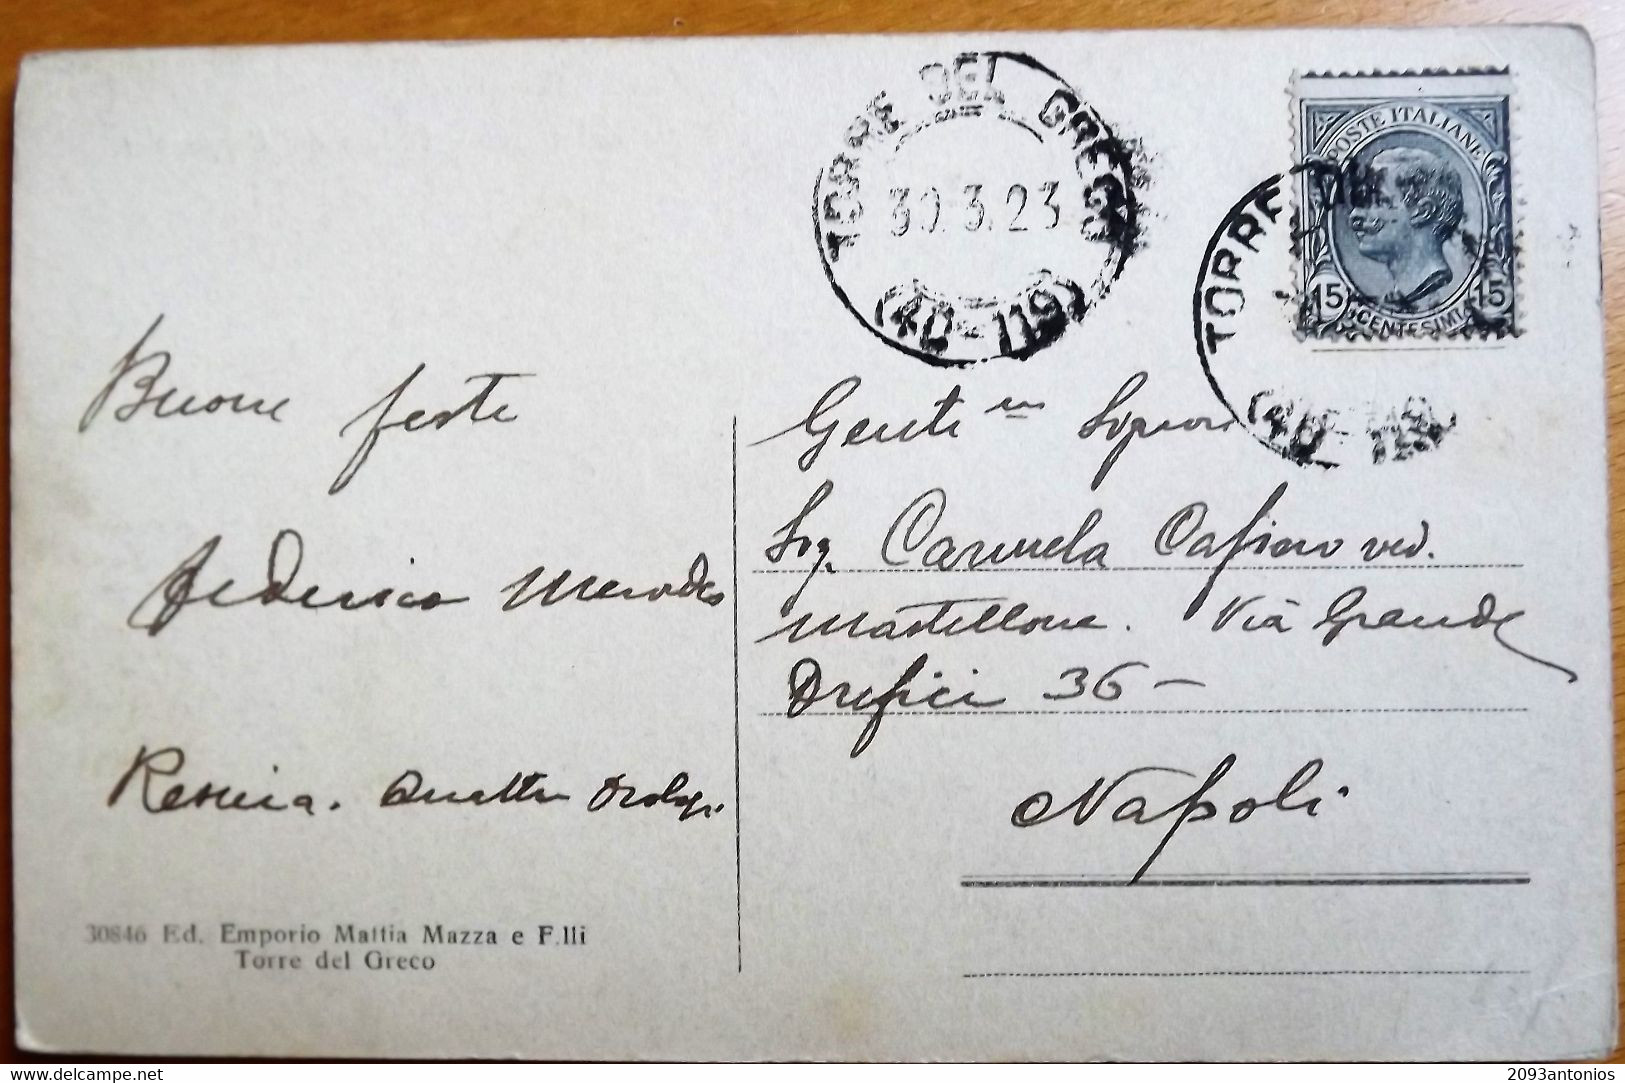 TORRE DEL GRECO
30.3.23
(40-119)
POSTE ITALIANE
15 15
CENTESIMI
TORRE DEL
Buone feste
Federico
Resina. Quattro Orologi
30846 Ed. Emporio Mattia Mazza e F.lli
Torre del Greco
Genti ma Signora
Sig. Carmela Cafiero ved.
Mastellone. Via Grande
Orefici 36 -
Napoli
www.delcampe.net
2093antonios